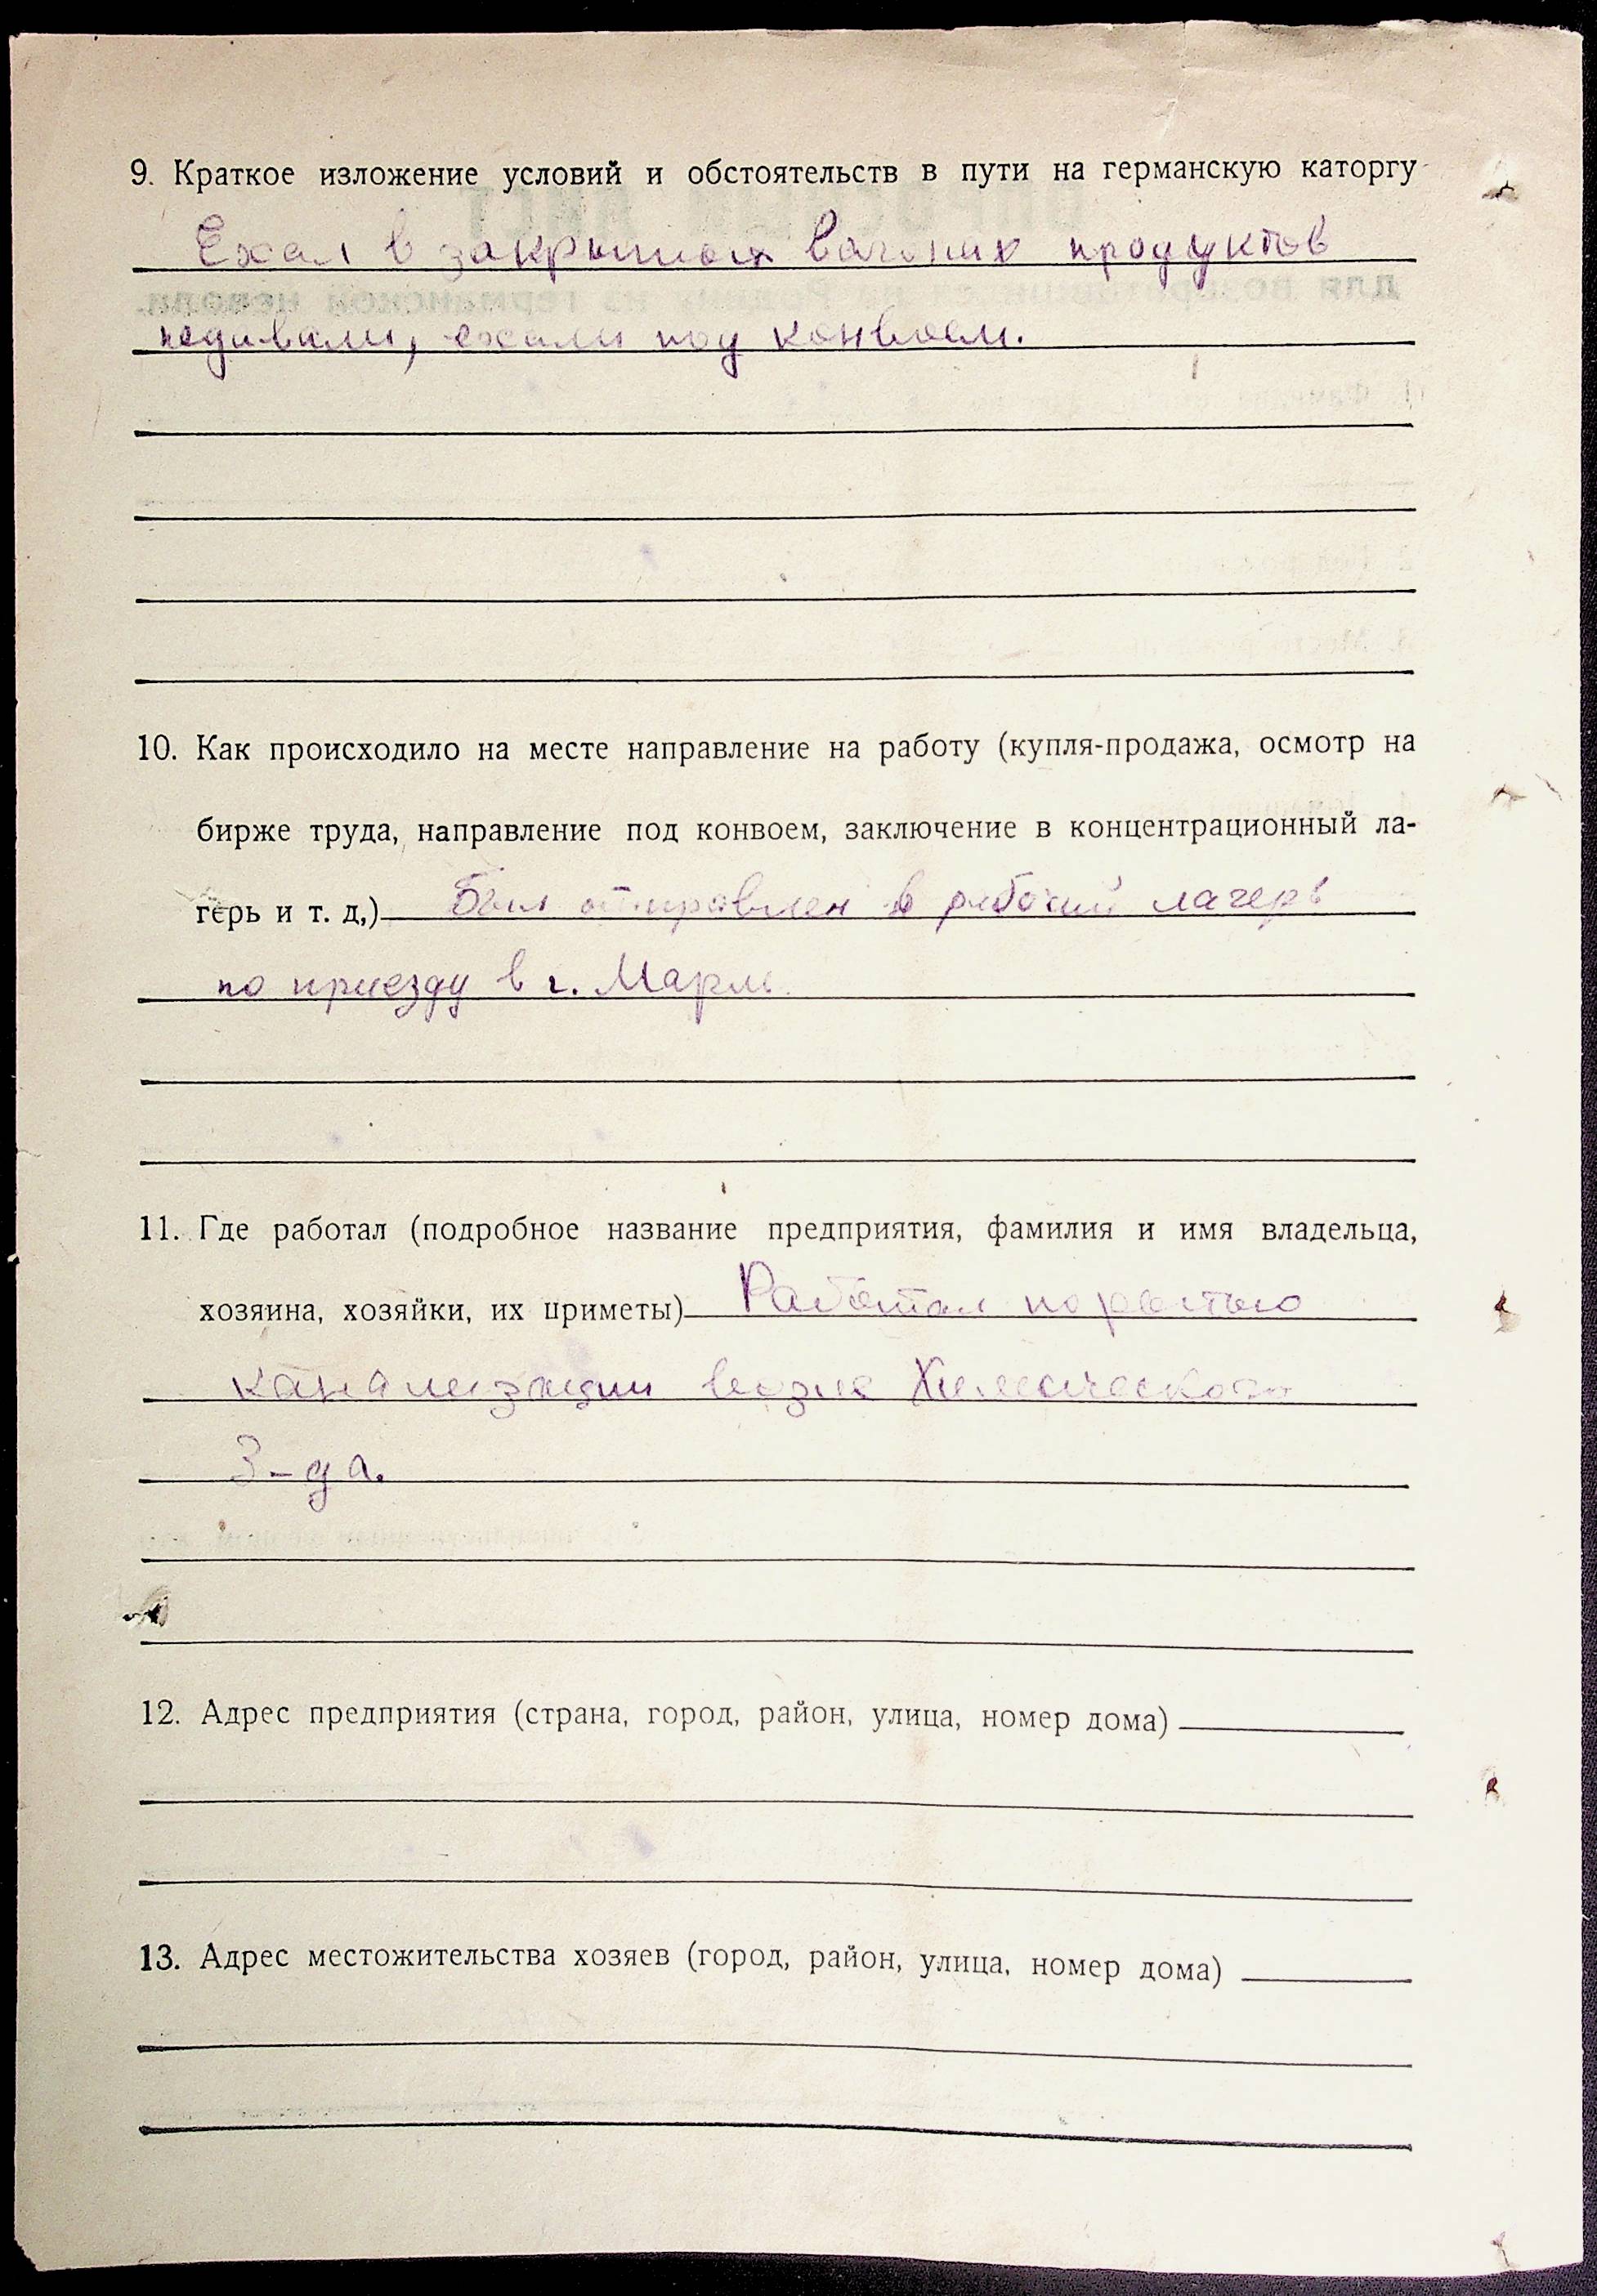 9. Краткое изложение условий и обстоятельств в пути на германскую каторгу
Ехал в закрытых вагонах продуктов
недавали, ехали под конвоем.
10. Как происходило на месте направление на работу (купля-продажа, осмотр на
бирже труда, направление под конвоем, заключение в концентрационный ла-
герь и т. д.) Был отправлен в рабочий лагерь
по приезду в г. Марль.
11. Где работал (подробное название предприятия, фамилия и имя владельца,
хозяина, хозяйки, их приметы) Работал по
канализации возле Химического
З-да.
12. Адрес предприятия (страна, город, район, улица, номер дома)
13. Адрес местожительства хозяев (город, район, улица, номер дома)